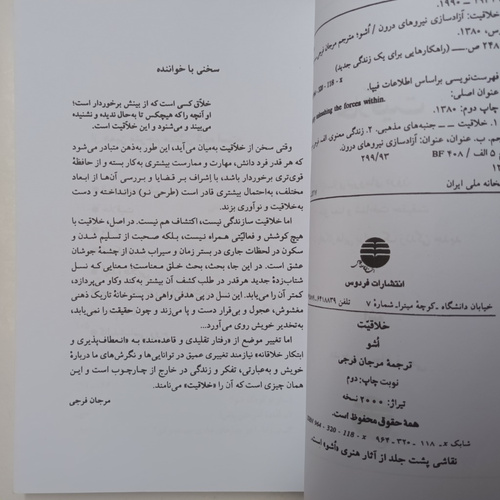 ۱۹۹۰ -
خلاقیت: آزادسازی نیروهای درون / اُشو؛ مترجم مرجان
۱۳۸۰.
۲۴۸ ص. ـــ (راهکارهایی برای یک زندگی جدید)
فهرست‌نویسی براساس اطلاعات فیپا.
عنوان اصلی:
unleashing the forces within.
چاپ دوم: ۱۳۸۰.
۱. خلاقیت ـــ جنبه‌های مذهبی. ۲. زندگی معنوی. الف.
ب. عنوان. عنوان: آزادسازی نیروهای درون.
۵ الف / ۴۰۸ BF
۲۹۹/۹۳
خانه ملی ایران
انتشارات فردوس
خیابان دانشگاه ـ کوچهٔ میترا ـ شمارهٔ ۷ تلفن
خلاقیّت
اُشو
ترجمهٔ مرجان فرجی
نوبت چاپ: دوم
تیراژ: ۲۰۰۰ نسخه
همهٔ حقوق محفوظ است.
شابک x ـ ۱۱۸ ـ ۳۲۰ ـ ۹۶۴ ISBN 964 - 320 - 118 - x
نقاشی پشت جلد از آثار هنری «اُشو» است.
سخنی با خواننده
خلاّق کسی است که از بینش برخوردار است؛
او آنچه را که هیچکس تا به‌حال ندیده و نشنیده
می‌بیند و می‌شنود و این خلاقیت است.
وقتی سخن از خلاقیت به‌میان می‌آید، این طور به‌ذهن متبادر می‌شود
که هر قدر فرد دانش، مهارت و ممارست بیشتری به‌کار بسته و از حافظهٔ
قوی‌تری برخوردار باشد، با اِشراف بر قضایا و بررسی آن‌ها از ابعاد
مختلف، به‌احتمال بیشتری قادر است (طرحی نو) دراندازد و دست
به‌خلاقیت و نوآوری بزند.
اما خلاقیت سازندگی نیست، اکتشاف هم نیست. در اصل، خلاقیت با
هیچ کوشش و فعالیّتی همراه نیست، بلکه صحبت از تسلیم شدن و
سکون در لحظات جاری در بستر زمان و سیراب شدن از چشمهٔ جوشان
عشق است. در این جا، بحث، بحث خلق معناست؛ معنایی که نسل
شتاب‌زدهٔ جدید هرقدر در طلب کشف آن بیشتر به‌کند وکاو می‌پردازد،
کمتر آن را می‌یابد. این نسل در پی هدفی واهی در پستوخانهٔ تاریک ذهنی
مغشوش، عجول و بی‌قرار دست و پا می‌زند و چون حقیقت را نمی‌یابد،
به‌تخدیر خویش روی می‌آورد...
اما تغییر موضع از «رفتار تقلیدی و قاعده‌مند» به «انعطاف‌پذیری و
ابتکار خلاقانه» نیازمند تغییری عمیق در توانایی‌ها و نگرش‌های ما دربارهٔ
خویش و به‌عبارتی، تفکر و زندگی در خارج از چارچوب است و این
همان چیزی است که آن را «خلاقیت» می‌نامند.
مرجان فرجی